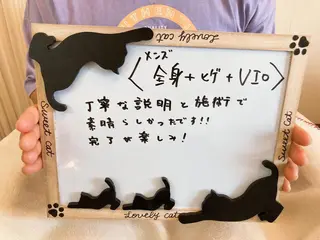 Lovely cat
メンズ
〈全身+ヒゲ+VIO〉
丁寧な説明と施術で
素晴らしかったです!!
完了が楽しみ!
Sweet Cat
Sweet Cat
Lovely cat